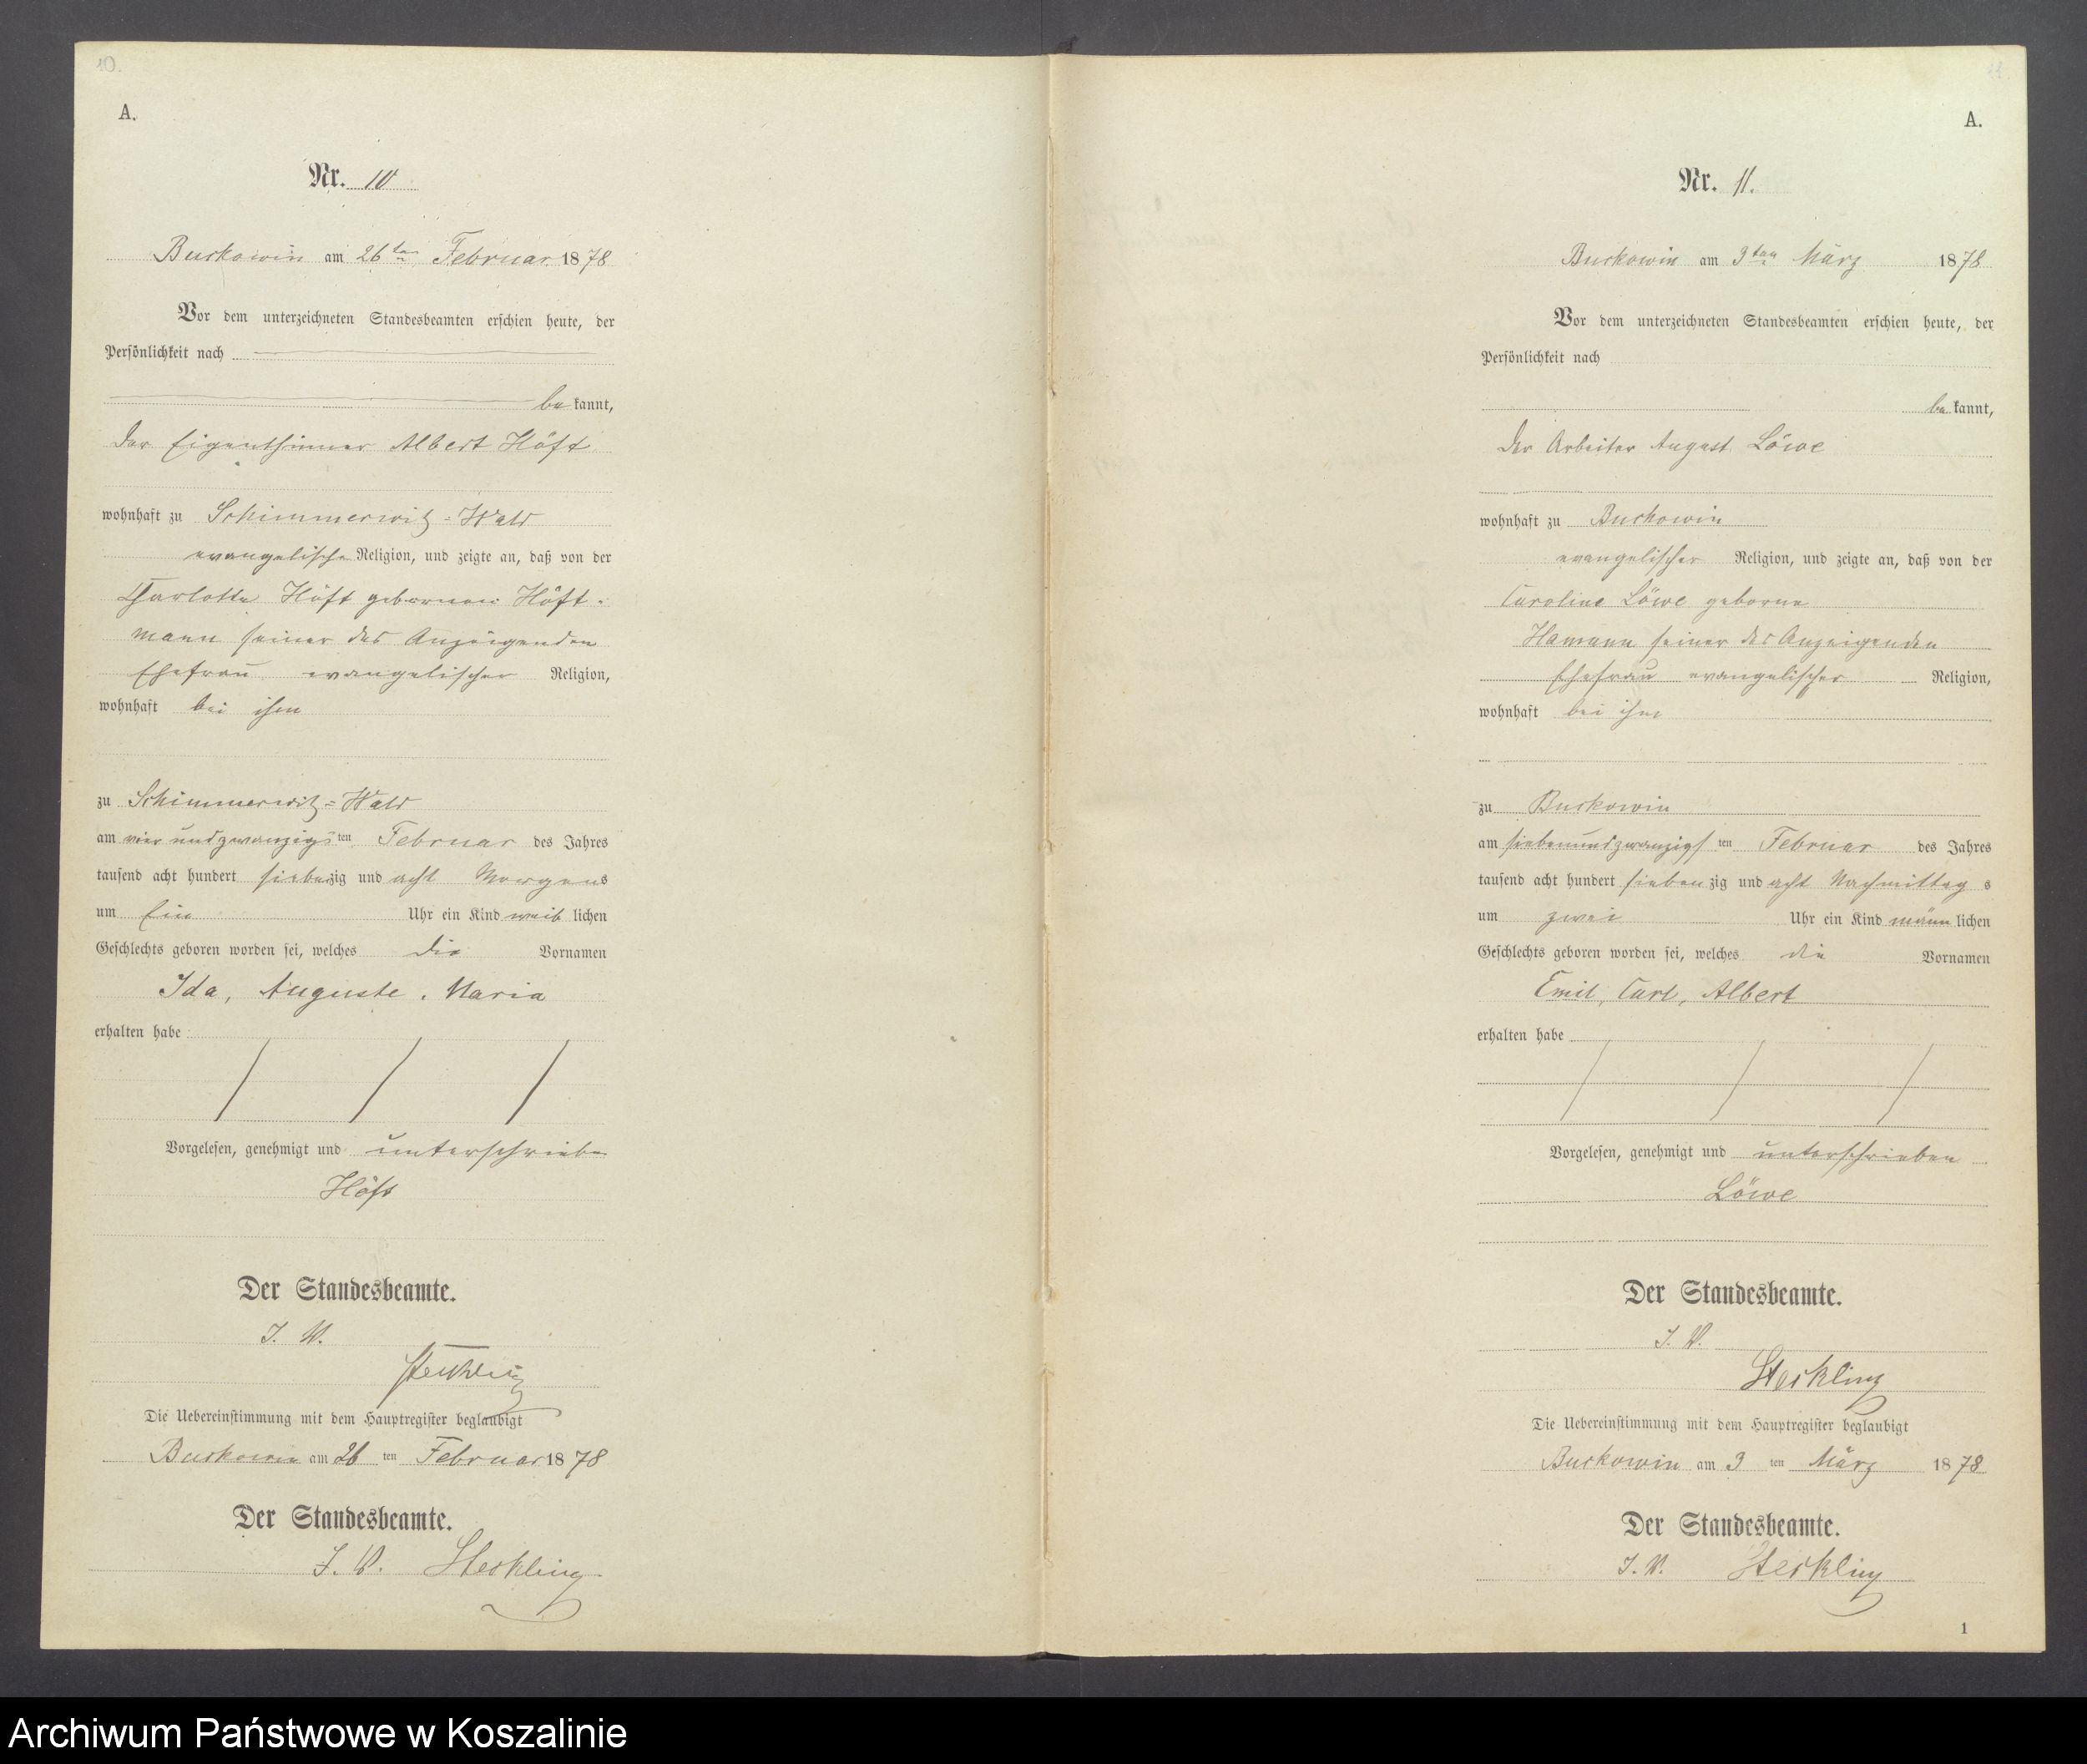 10.
A.
Nr. 10
Buckowin am 26ten Februar 1878
Vor dem unterzeichneten Standesbeamten erschien heute, der
Persönlichkeit nach
be kannt,
der Eigenthümer Albert Höft
wohnhaft zu Schimmerwitz=Wald
evangelische Religion, und zeigte an, daß von der
Charlotte Höft geborenen Höft-
mann seiner des Anzeigenden
Ehefrau evangelischer Religion,
wohnhaft bei ihm
zu Schimmerwitz=Wald
am vier und zwanzigs ten Februar des Jahres
tausend acht hundert siebenzig und acht Morgens
um Ein Uhr ein Kind weib lichen
Geschlechts geboren worden sei, welches die Vornamen
Ida, Auguste, Maria
erhalten habe
Vorgelesen, genehmigt und unterschrieben
Höft
Der Standesbeamte.
I. V.
Steckling
Die Uebereinstimmung mit dem Hauptregister beglaubigt
Buckowin am 26 ten Februar 1878
Der Standesbeamte.
I. V. Steckling
11.
A.
Nr. 11.
Buckowin am 3ten März 1878
Vor dem unterzeichneten Standesbeamten erschien heute, der
Persönlichkeit nach
be kannt,
der Arbeiter August Löwe
wohnhaft zu Buckowin
evangelischer Religion, und zeigte an, daß von der
Caroline Löwe geborne
Hamann seiner des Anzeigenden
Ehefrau evangelischer Religion,
wohnhaft bei ihm
zu Buckowin
am siebenundzwanzigs ten Februar des Jahres
tausend acht hundert siebenzig und acht Nachmittag s
um zwei Uhr ein Kind männ lichen
Geschlechts geboren worden sei, welches die Vornamen
Emil, Carl, Albert
erhalten habe
Vorgelesen, genehmigt und unterschrieben
Löwe
Der Standesbeamte.
I. V.
Steckling
Die Uebereinstimmung mit dem Hauptregister beglaubigt
Buckowin am 3 ten März 1878
Der Standesbeamte.
I. V. Steckling
1
Archiwum Państwowe w Koszalinie